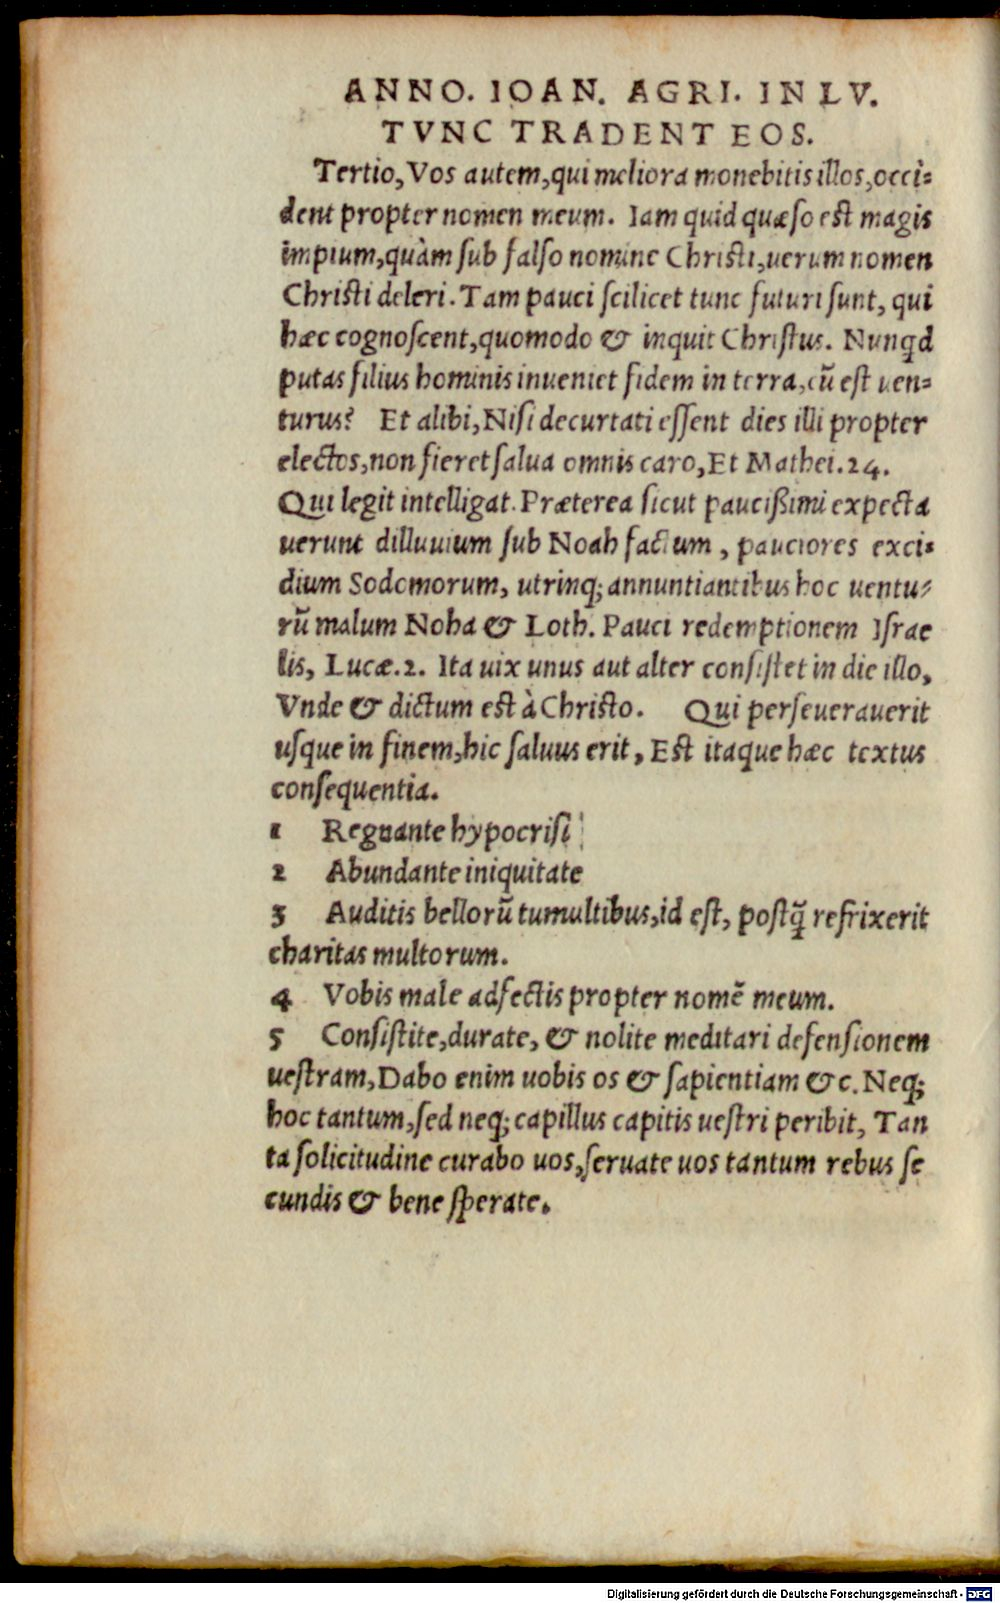 ANNO. IOAN. AGRI. IN LV.
TVNC TRADENT EOS.
Tertio, Vos autem, qui meliora monebitis illos, occi=
dent propter nomen meum. Iam quid quæso est magis
impium, quàm sub falso nomine Christi, uerum nomen
Christi deleri. Tam pauci scilicet tunc futuri sunt, qui
hæc cognoscent, quomodo & inquit Christus. Nunqd
putas filius hominis inueniet fidem in terra, cũ est uen=
turus? Et alibi, Nisi decurtati essent dies illi propter
electos, non fieret salua omnis caro, Et Mathei. 24.
Qui legit intelligat. Præterea sicut paucißimi expecta
uerunt dilluuium sub Noah factum, pauciores exci=
dium Sodomorum, utrinq; annuntiantibus hoc uentu=
rũ malum Noha & Loth. Pauci redemptionem Israe
lis, Lucæ. 2. Ita uix unus aut alter consistet in die illo,
Vnde & dictum est à Christo. Qui perseuerauerit
usque in finem, hic saluus erit, Est itaque hæc textus
consequentia.
1 Regnante hypocrisi
2 Abundante iniquitate
3 Auditis bellorũ tumultibus, id est, postq̃ refrixerit
charitas multorum.
4 Vobis male adfectis propter nomẽ meum.
5 Consistite, durate, & nolite meditari defensionem
uestram, Dabo enim uobis os & sapientiam &c. Neq;
hoc tantum, sed neq; capillus capitis uestri peribit, Tan
ta solicitudine curabo uos, seruate uos tantum rebus se
cundis & bene sperate.
Digitalisierung gefördert durch die Deutsche Forschungsgemeinschaft - DFG